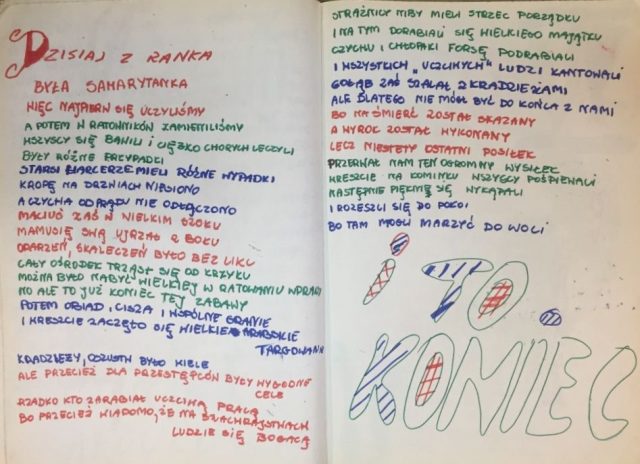 DZISIAJ Z RANKA
BYŁA SAMARYTANKA
WIĘC NAJPIERW SIĘ UCZYLIŚMY
A POTEM W RATOWNIKÓW ZAMIENILIŚMY
WSZYSCY SIĘ BAWILI I CIĘŻKO CHORYCH LECZYLI
BYŁY RÓŻNE PRZYPADKI
STARSI HARCERZE MIELI RÓŻNE WYPADKI
KROPĘ NA DRZWIACH NIESIONO
A CZYCHA OD PRĄDU NIE ODŁĄCZONO
MACIUŚ ZAŚ W WIELKIM SZOKU
MAMUSIĘ SWĄ UJRZAŁ Z BOKU
OPARZEŃ, SKALECZEŃ BYŁO BEZ LIKU
CAŁY OŚRODEK TRZĄSŁ SIĘ OD KRZYKU
MOŻNA BYŁO NABYĆ WIELKIEJ W RATOWANIU WPRAWY
NO ALE TO JUŻ KONIEC TEJ ZABAWY
POTEM OBIAD, CISZA I WSPÓLNE GRANIE
I WRESZCIE ZACZĘŁO SIĘ WIELKIE ARABSKIE
TARGOWANIE
KRADZIEŻY, OSZUSTW BYŁO WIELE
ALE PRZECIEŻ DLA PRZESTĘPCÓW BYŁY WYGODNE
CELE
RZADKO KTO ZARABIAŁ UCZCIWĄ PRACĄ
BO PRZECIEŻ WIADOMO, ŻE NA SZACHRAJSTWACH
LUDZIE SIĘ BOGACĄ
STRAŻNICY NIBY MIELI STRZEC PORZĄDKU
I NA TYM DORABIALI SIĘ WIELKIEGO MAJĄTKU
CZYCHU I CHŁOPAKI FORSĘ PODRABIALI
I WSZYSTKICH „UCZCIWYCH" LUDZI KANTOWALI
GOŁĄB ZAŚ SZALAŁ Z KRADZIEŻAMI
ALE DLATEGO NIE MÓGŁ BYĆ DO KOŃCA Z NAMI
BO NA ŚMIERĆ ZOSTAŁ SKAZANY
A WYROK ZOSTAŁ WYKONANY
LECZ NIESTETY OSTATNI POSIŁEK
PRZERWAŁ NAM TEN OGROMNY WYSIŁEK
WRESZCIE NA KOMINKU WSZYSCY POŚPIEWALI
NASTĘPNIE PIĘKNIE SIĘ WYKĄPALI
I ROZESZLI SIĘ DO POKOI
BO TAM MOGLI MARZYĆ DO WOLI
i TO
KONIEC